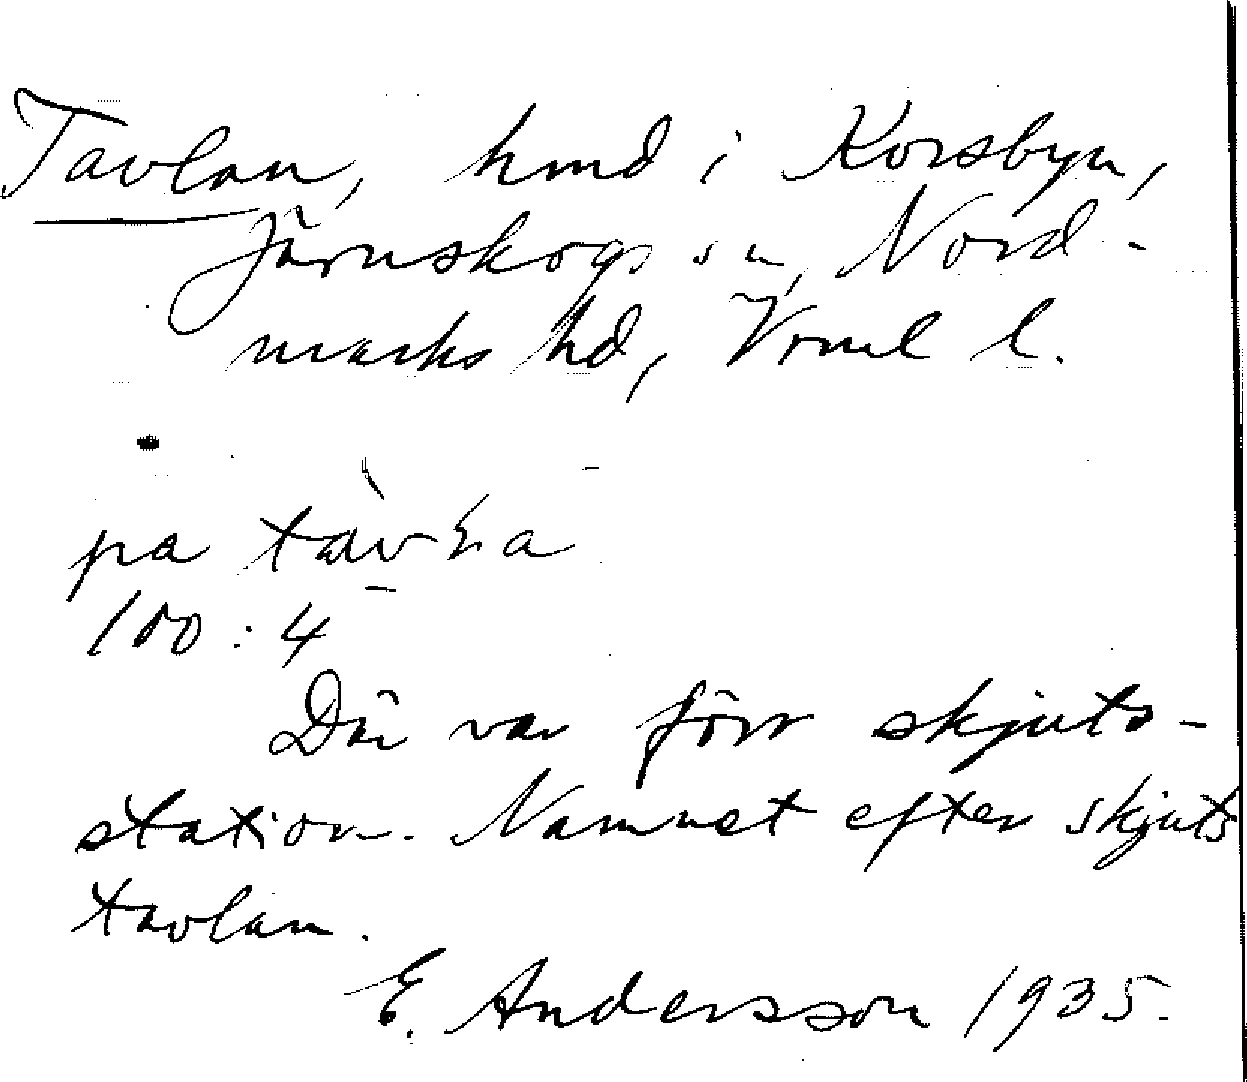 Tavlan, hmd i Korsbyn,
Järnskogs sn, Nord-
marks hd, Vrml l.
pa
100:4
Där var förr skjuts-
station. Namnet efter skjuts
tavlan.
E. Andersson 1935.